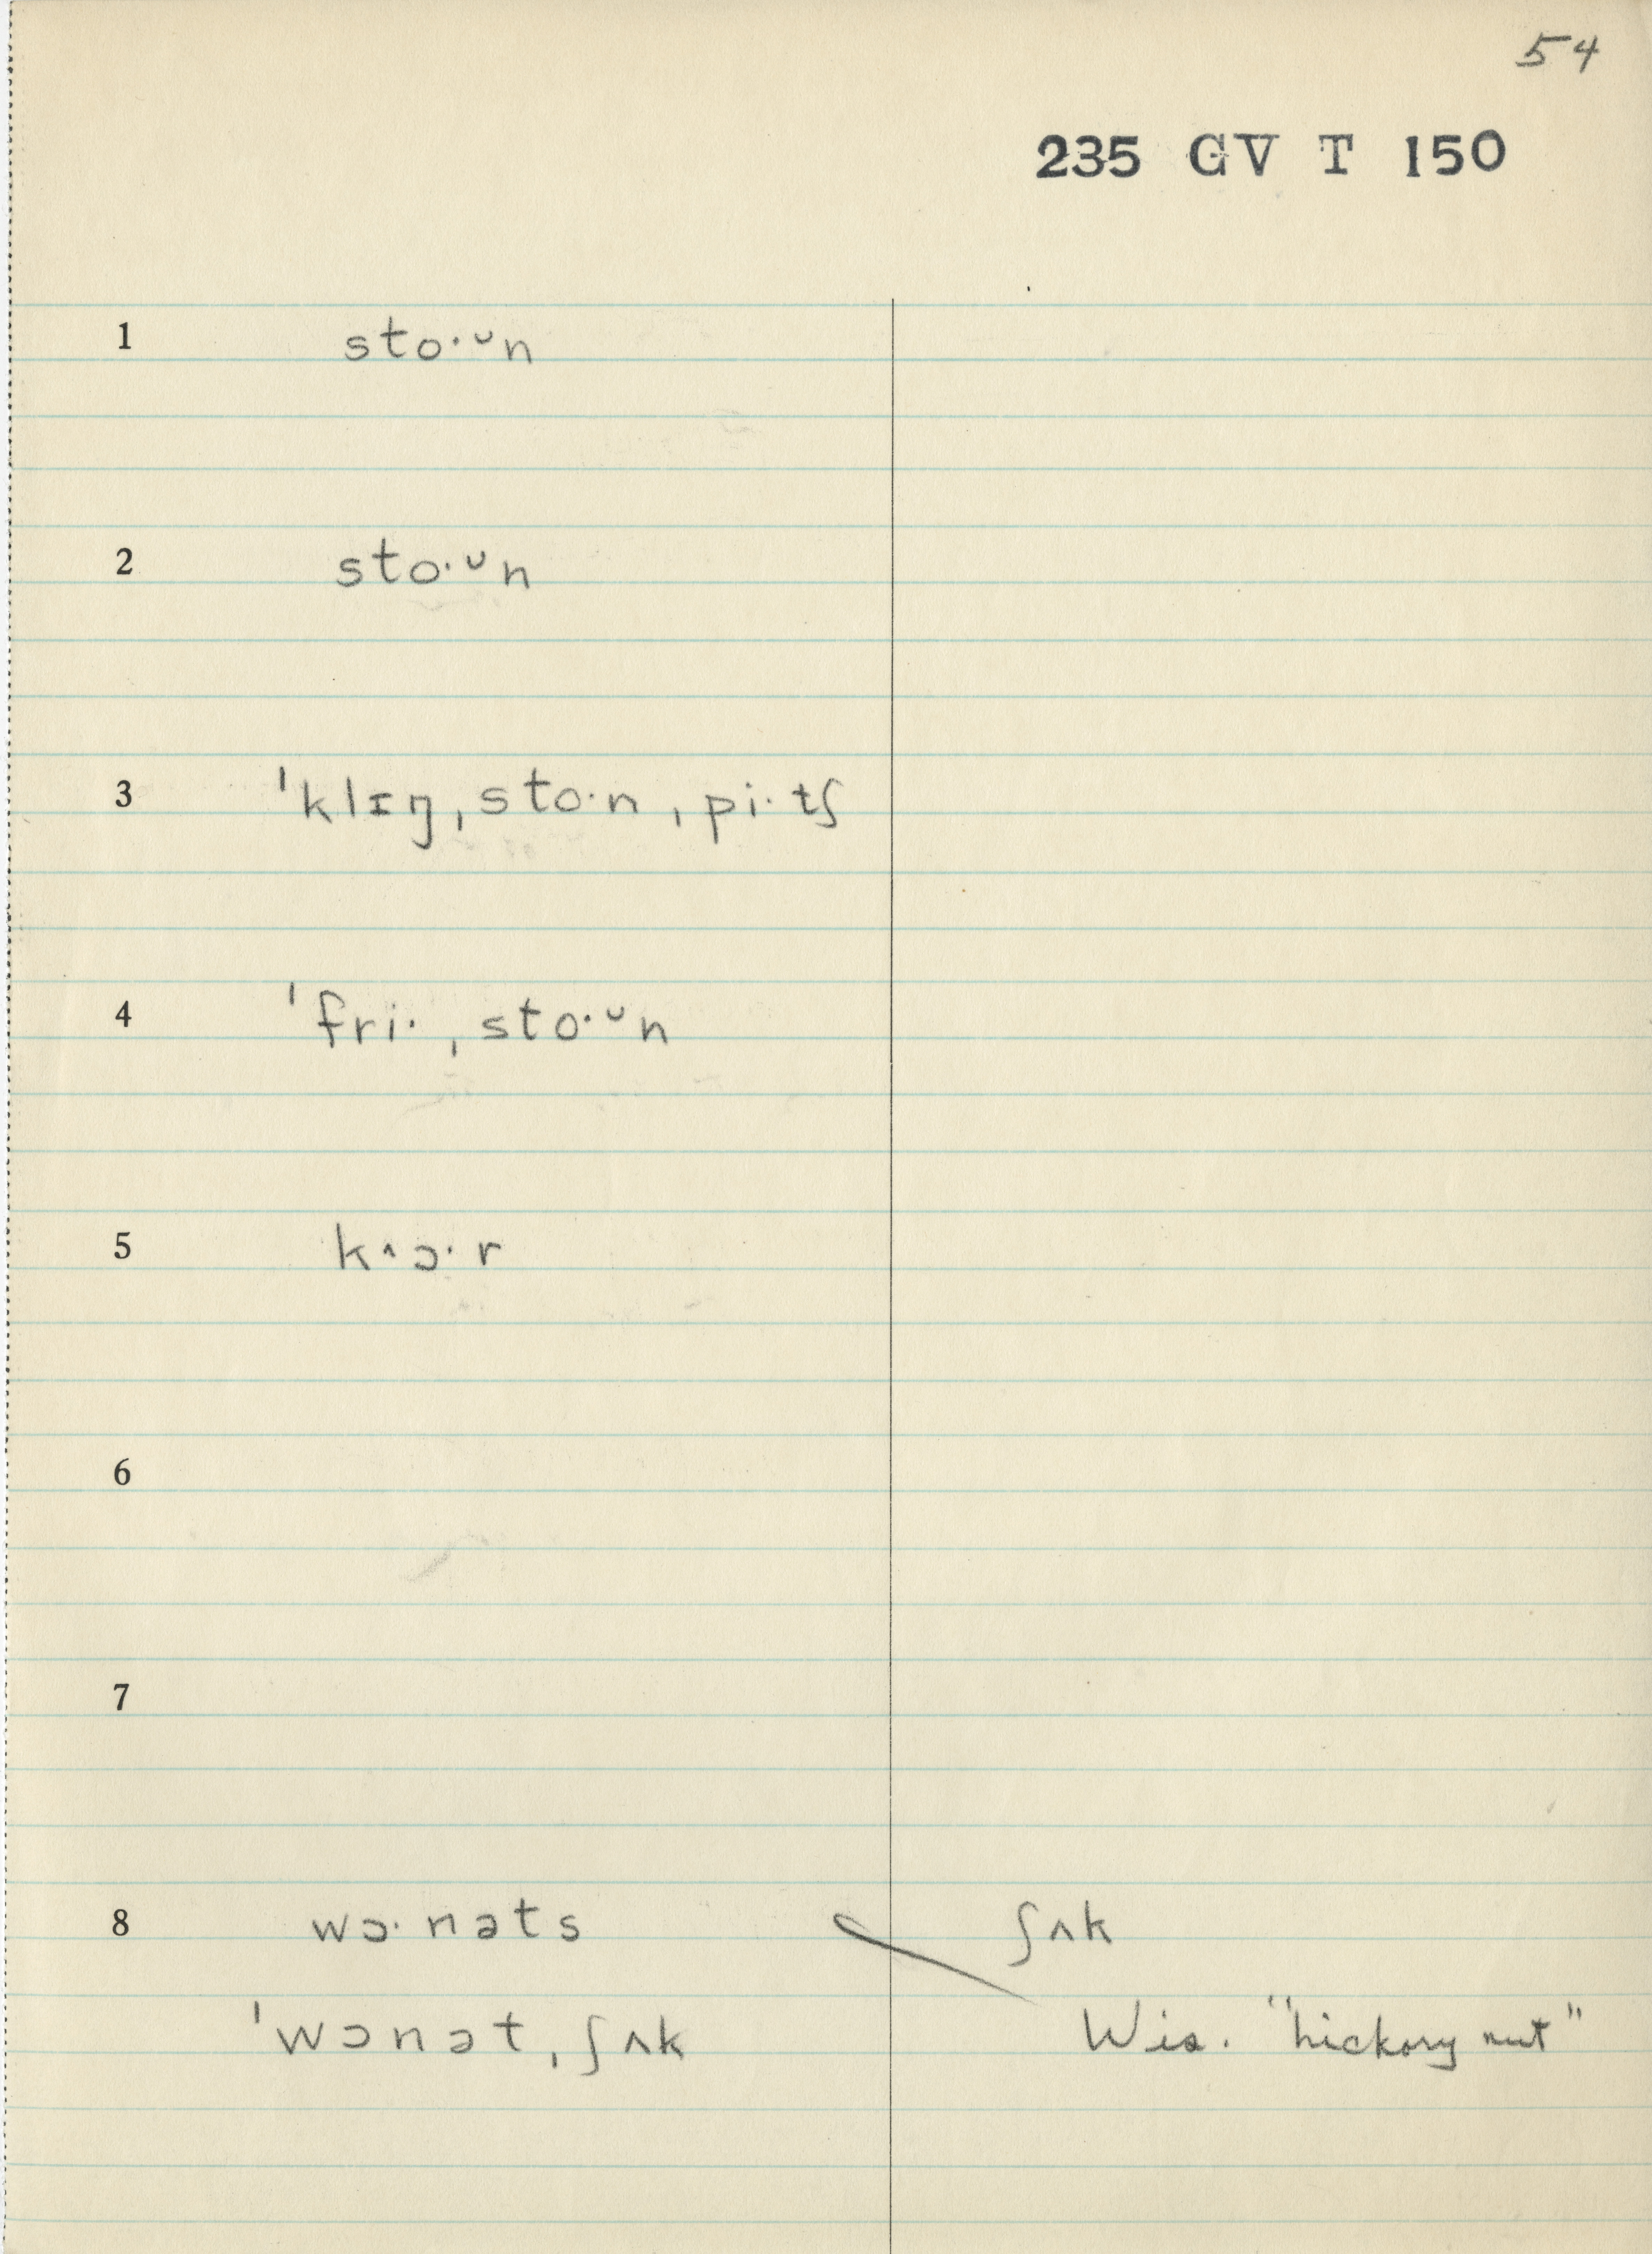 54
235 GV T 150
1 sto·ᴗn
2 sto·ᴗn
3 ˈklɪŋˌsto·nˌpi·tʃ
4 ˈfri·ˌsto·ᴗn
5 k˄ɔ·r
6
7
8 wɔ·nəts ʃʌk
ˈwɔnətˌʃʌk Wis. "hickory nut"